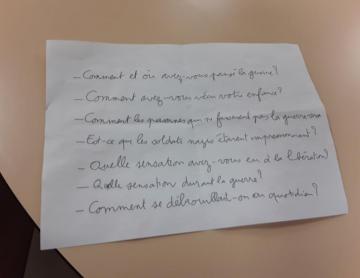 - Comment et où avez-vous passé la guerre?
- Comment avez-vous vécu votre enfance?
- Comment les personnes qui ne faisaient pas la guerre
- Est-ce que les soldats nazis étaient impressionnant?
- Quelle sensation avez-vous eu à la libération?
- Quelle sensation durant la guerre?
- Comment se débrouillait-on au quotidien?